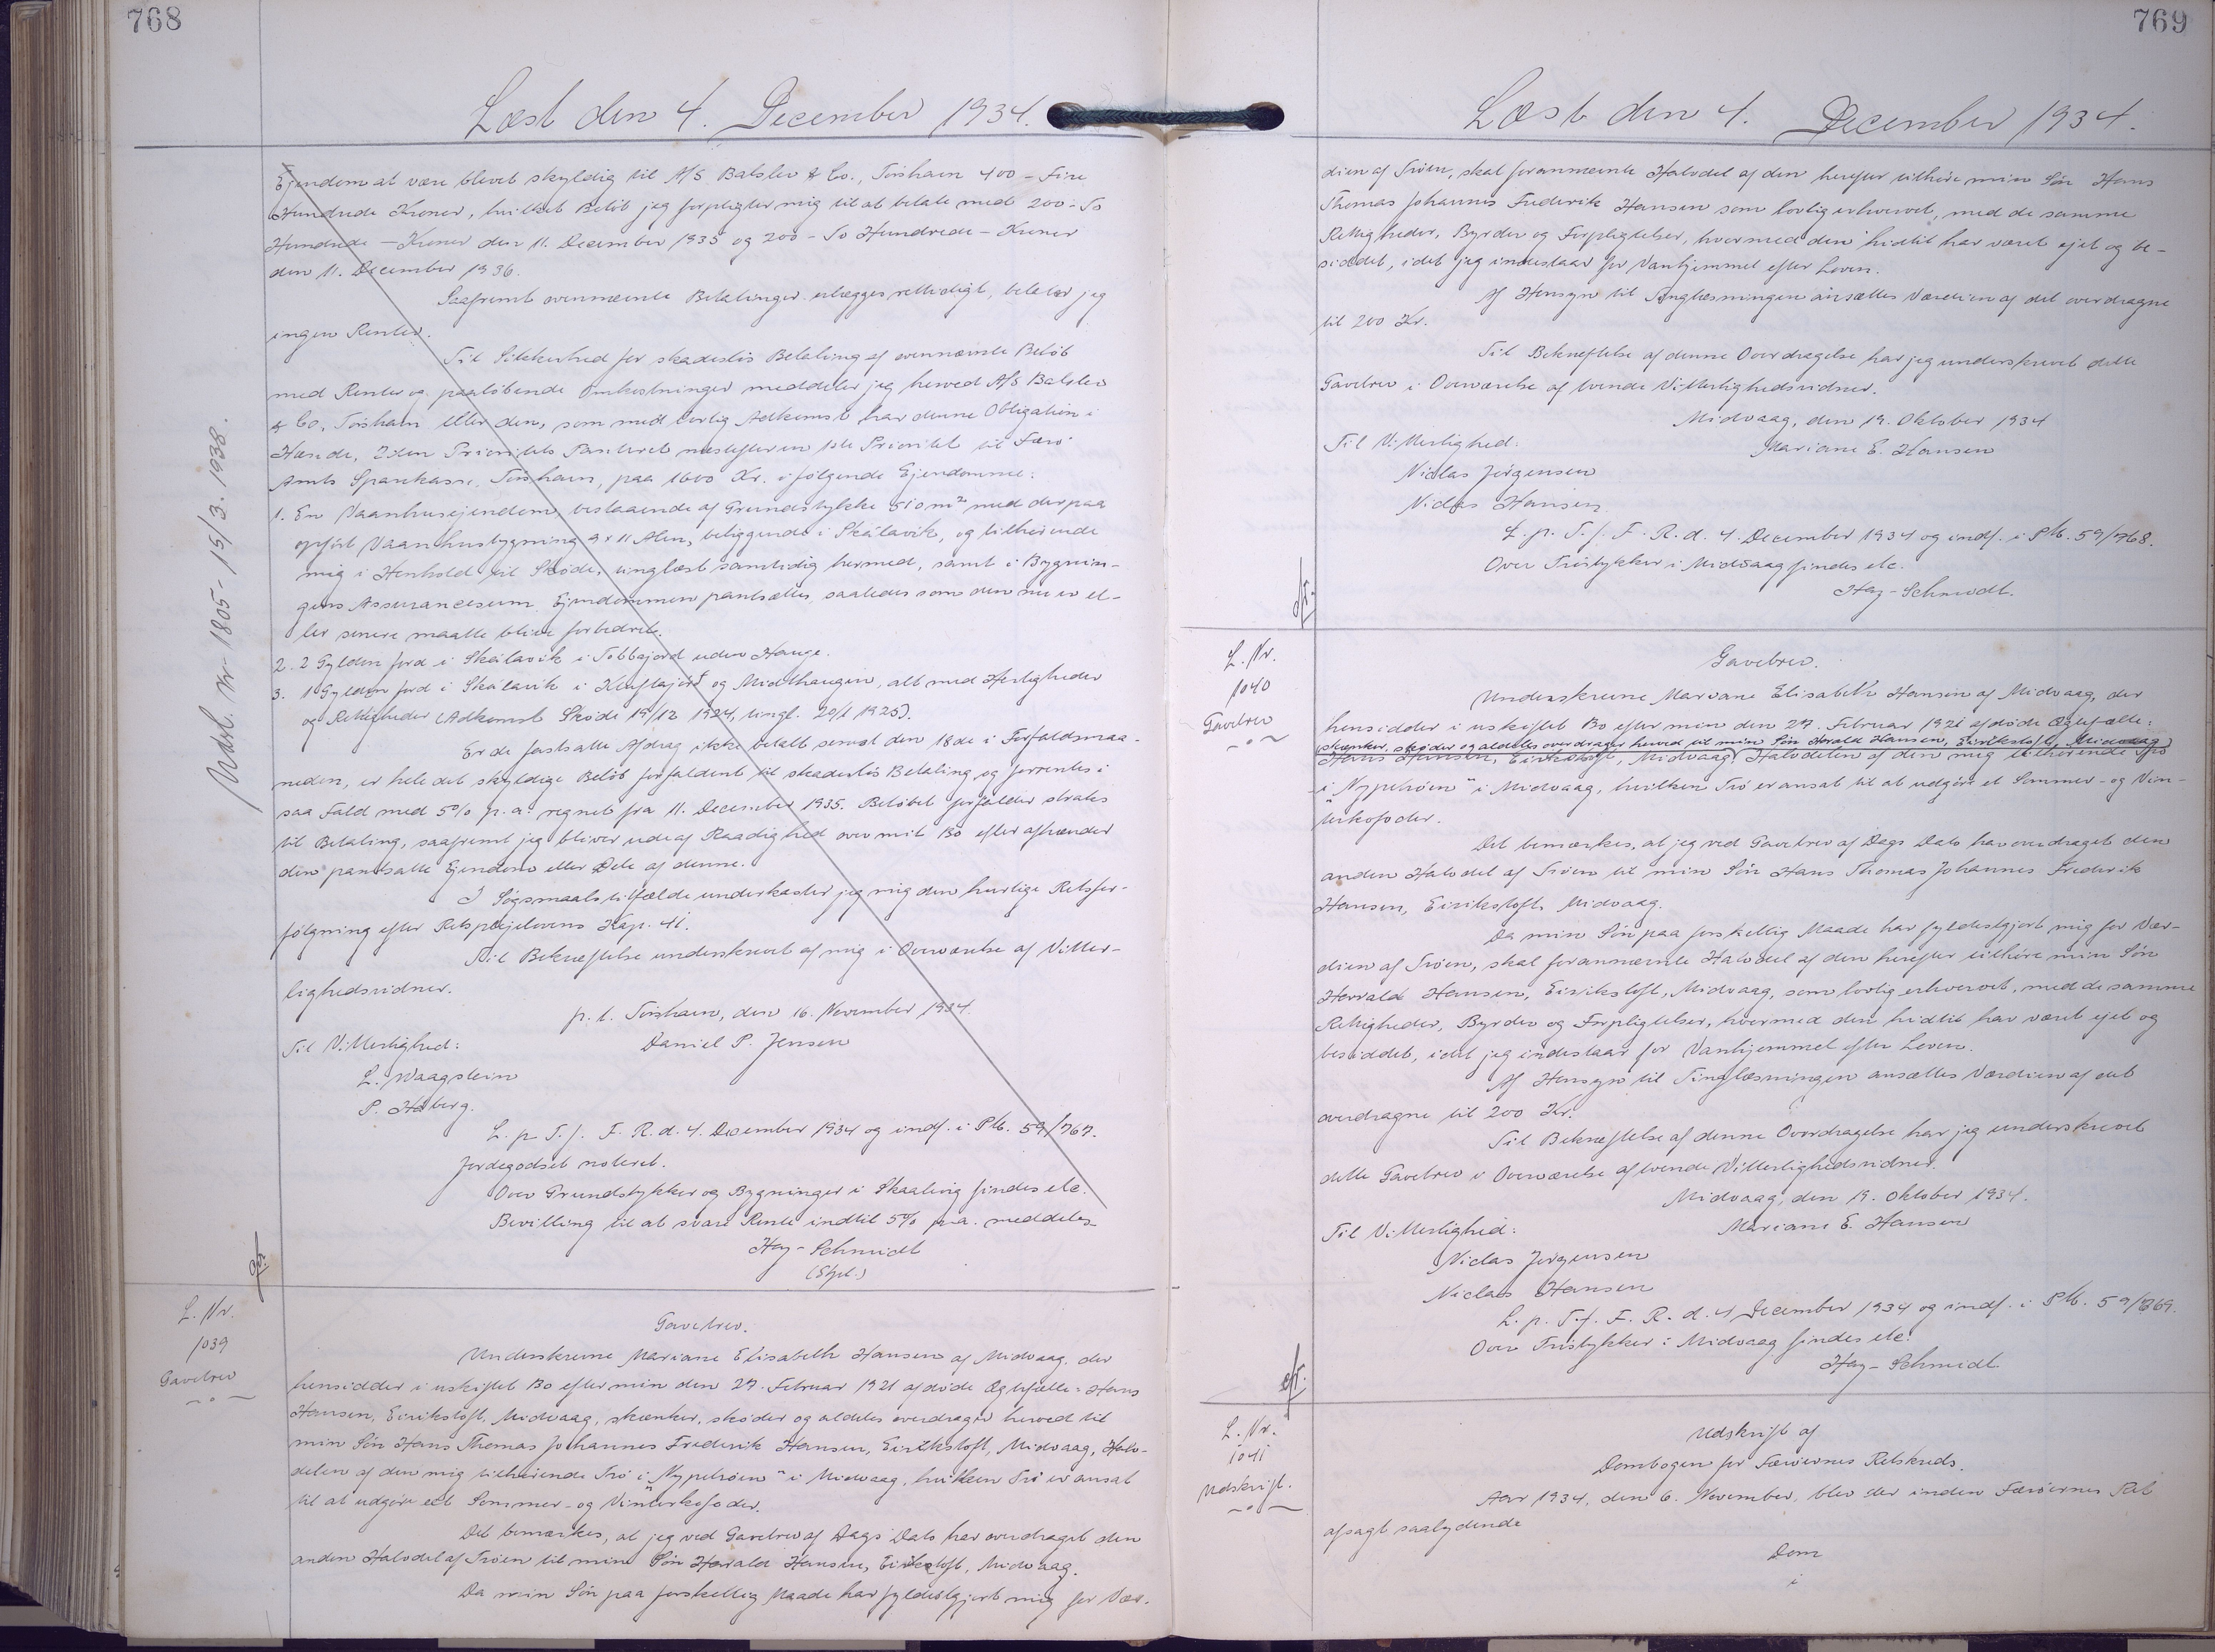 768
Læst den 4. December 1934.
Ejendom at være blevet skyldig til A/S Balslev & Co., Torshavn 400 - Fire
Hundrede Kroner, hvilket Beløb jeg forpligter mig til at betale med 200 - To
Hundrede - Kroner den 11. December 1935 og 200 - To Hundrede - Kroner
den 11. December 1936.
Saafremt ovennævnte Betalinger erlægges rettidigt, betaler jeg
ingen Renter.
Til Sikkerhed for skadesløs Betaling af ovennævnte Beløb
med Renter og paaløbende Omkostninger meddeler jeg herved A/S Balslev
& Co, Torshavn eller den, som med lovlig Adkomst har denne Obligation i
Hænde, 2den Prioritets Panteret næstefter en 1ste Prioritet til Færø
Amts Sparekasse, Torshavn, paa 1600 Kr. i følgende Ejendomme:
1. En Vaanhusejendom, bestaaende af Grundstykke 510 m² med derpaa
opført Vaanhusbygning 9 x 11 Alen, beliggende i Skálavik, og tilhørende
mig i Henhold til Skøde, tinglæst samtidig hermed, samt i Bygnin-
gens Assurancesum. Ejendommen pantsættes, saaledes som den nu er el-
ler senere maatte blive forbedret.
2. 2 Gylden Jord i Skálavik i Tobbajord uden Hauge.
3. 1 Gylden Jord i Skálavik i Kluftajord og Midthaugen, alt med Herligheder
og Rettigheder (Adkomst Skøde 19/12 1924, tingl. 20/1 1925).
Er de fastsatte Afdrag ikke betalt senest den 18de i Forfaldsmaa-
neden, er hele det skyldige Beløb forfaldent til skadesløs Betaling og forrentes i
saa Fald med 5% p.a. regnet fra 11. December 1935. Beløbet forfalder straks
til Betaling, saafremt jeg bliver ude af Raadighed over mit Bo eller afhænder
den pantsatte Ejendom eller Dele af denne.
I Søgsmaalstilfælde underkaster jeg mig den hurtige Retsfor-
følgning efter Retsplejelovens Kap. 41.
Til Bekræftelse underskrevet af mig i Overværelse af Vitter-
lighedsvidner.
p. t. Torshavn, den 16. November 1934.
Til Vitterlighed: Daniel P. Jensen
L. Waagstein
P. Høberg.
L. p. T. f. F. R. d. 4. December 1934 og indf. i Ptb. 59/767.
Jordegodset noteret.
Over Grundstykker og Bygninger i Skaalevig findes etc.
Bevilling til at svare Rente indtil 5% p.a. meddeles
Hay-Schmidt
(Stpl.)
Udsl. Nr 1805 - 15/3. 1938.
L. Nr.
1039
Gavebrev
Gavebrev.
Underskrevne Mariane Elisabeth Hansen af Midvaag, der
hensidder i uskiftet Bo efter min den 27. Februar 1921 afdøde Ægtefælle: Hans
Hansen, Eirikstoft, Midvaag, skænker, skøder og aldeles overdrager herved til
min Søn Hans Thomas Johannes Frederik Hansen, Eirikstoft, Midvaag, Halv-
delen af den mig tilhørende Trø i "Nypetrøen" i Midvaag, hvilken Trø er ansat
til at udgøre eet Sommer- og Vinterkofoder.
Det bemærkes, at jeg ved Gavebrev af Dags Dato har overdraget den
anden Halvdel af Trøen til min Søn Harald Hansen, Eirikstoft, Midvaag.
Da min Søn paa forskellig Maade har fyldestgjort mig for Vær-
769
Læst den 4. December 1934.
dien af Trøen, skal forannævnte Halvdel af den herefter tilhøre min Søn Hans
Thomas Johannes Frederik Hansen som lovlig erhvervet, med de samme
Rettigheder, Byrder og Forpligtelser, hvormed den hidtil har været ejet og be-
siddet, idet jeg indestaar for Vanhjemmel efter Loven.
Af Hensyn til Tinglæsningen ansættes Værdien af det overdragne
til 200 Kr.
Til Bekræftelse af denne Overdragelse har jeg underskrevet dette
Gavebrev i Overværelse af tvende Vitterlighedsvidner.
Midvaag, den 19. Oktober 1934
Til Vitterlighed: Mariane E. Hansen
Niclas Jørgensen
Niclas Hansen
L. p. T. f. F. R. d. 4. December 1934 og indf. i Ptb. 59/768.
Over Trøstykker i Midvaag findes etc.
Hay-Schmidt.
L. Nr.
1040
Gavebrev
Gavebrev.
Underskrevne Mariane Elisabeth Hansen af Midvaag, der
hensidder i uskiftet Bo efter min den 27. Februar 1921 afdøde Ægtefælle:
skænker, skøder og aldeles overdrager herved til min Søn Harald Hansen, Eirikstoft, Midvaag
Hans Hansen, Eirikstoft, Midvaag, Halvdelen af den mig tilhørende Trø
i "Nypetrøen" i Midvaag, hvilken Trø er ansat til at udgøre et Sommer- og Vin-
terkofoder.
Det bemærkes, at jeg ved Gavebrev af Dags Dato har overdraget den
anden Halvdel af Trøen til min Søn Hans Thomas Johannes Frederik
Hansen, Eirikstoft, Midvaag.
Da min Søn paa forskellig Maade har fyldestgjort mig for Vær-
dien af Trøen, skal forannævnte Halvdel af den herefter tilhøre min Søn
Harald Hansen, Eirikstoft, Midvaag, som lovlig erhvervet, med de samme
Rettigheder, Byrder og Forpligtelser, hvormed den hidtil har været ejet og
besiddet, idet jeg indestaar for Vanhjemmel efter Loven.
Af Hensyn til Tinglæsningen ansættes Værdien af det
overdragne til 200 Kr.
Til Bekræftelse af denne Overdragelse har jeg underskrevet
dette Gavebrev i Overværelse af tvende Vitterlighedsvidner.
Midvaag, den 19. Oktober 1934.
Til Vitterlighed: Mariane E. Hansen
Niclas Jørgensen
Niclas Hansen
L. p. T. f. F. R. d. 4 December 1934 og indf. i Ptb. 59/769.
Over Trøstykker i Midvaag findes etc.
Hay-Schmidt
L. Nr.
1041
Udskrift.
Udskrift af
Dombogen for Færøernes Retskreds.
Aar 1934, den 6. November, blev der inden Færøernes Ret
afsagt saalydende
Dom
i